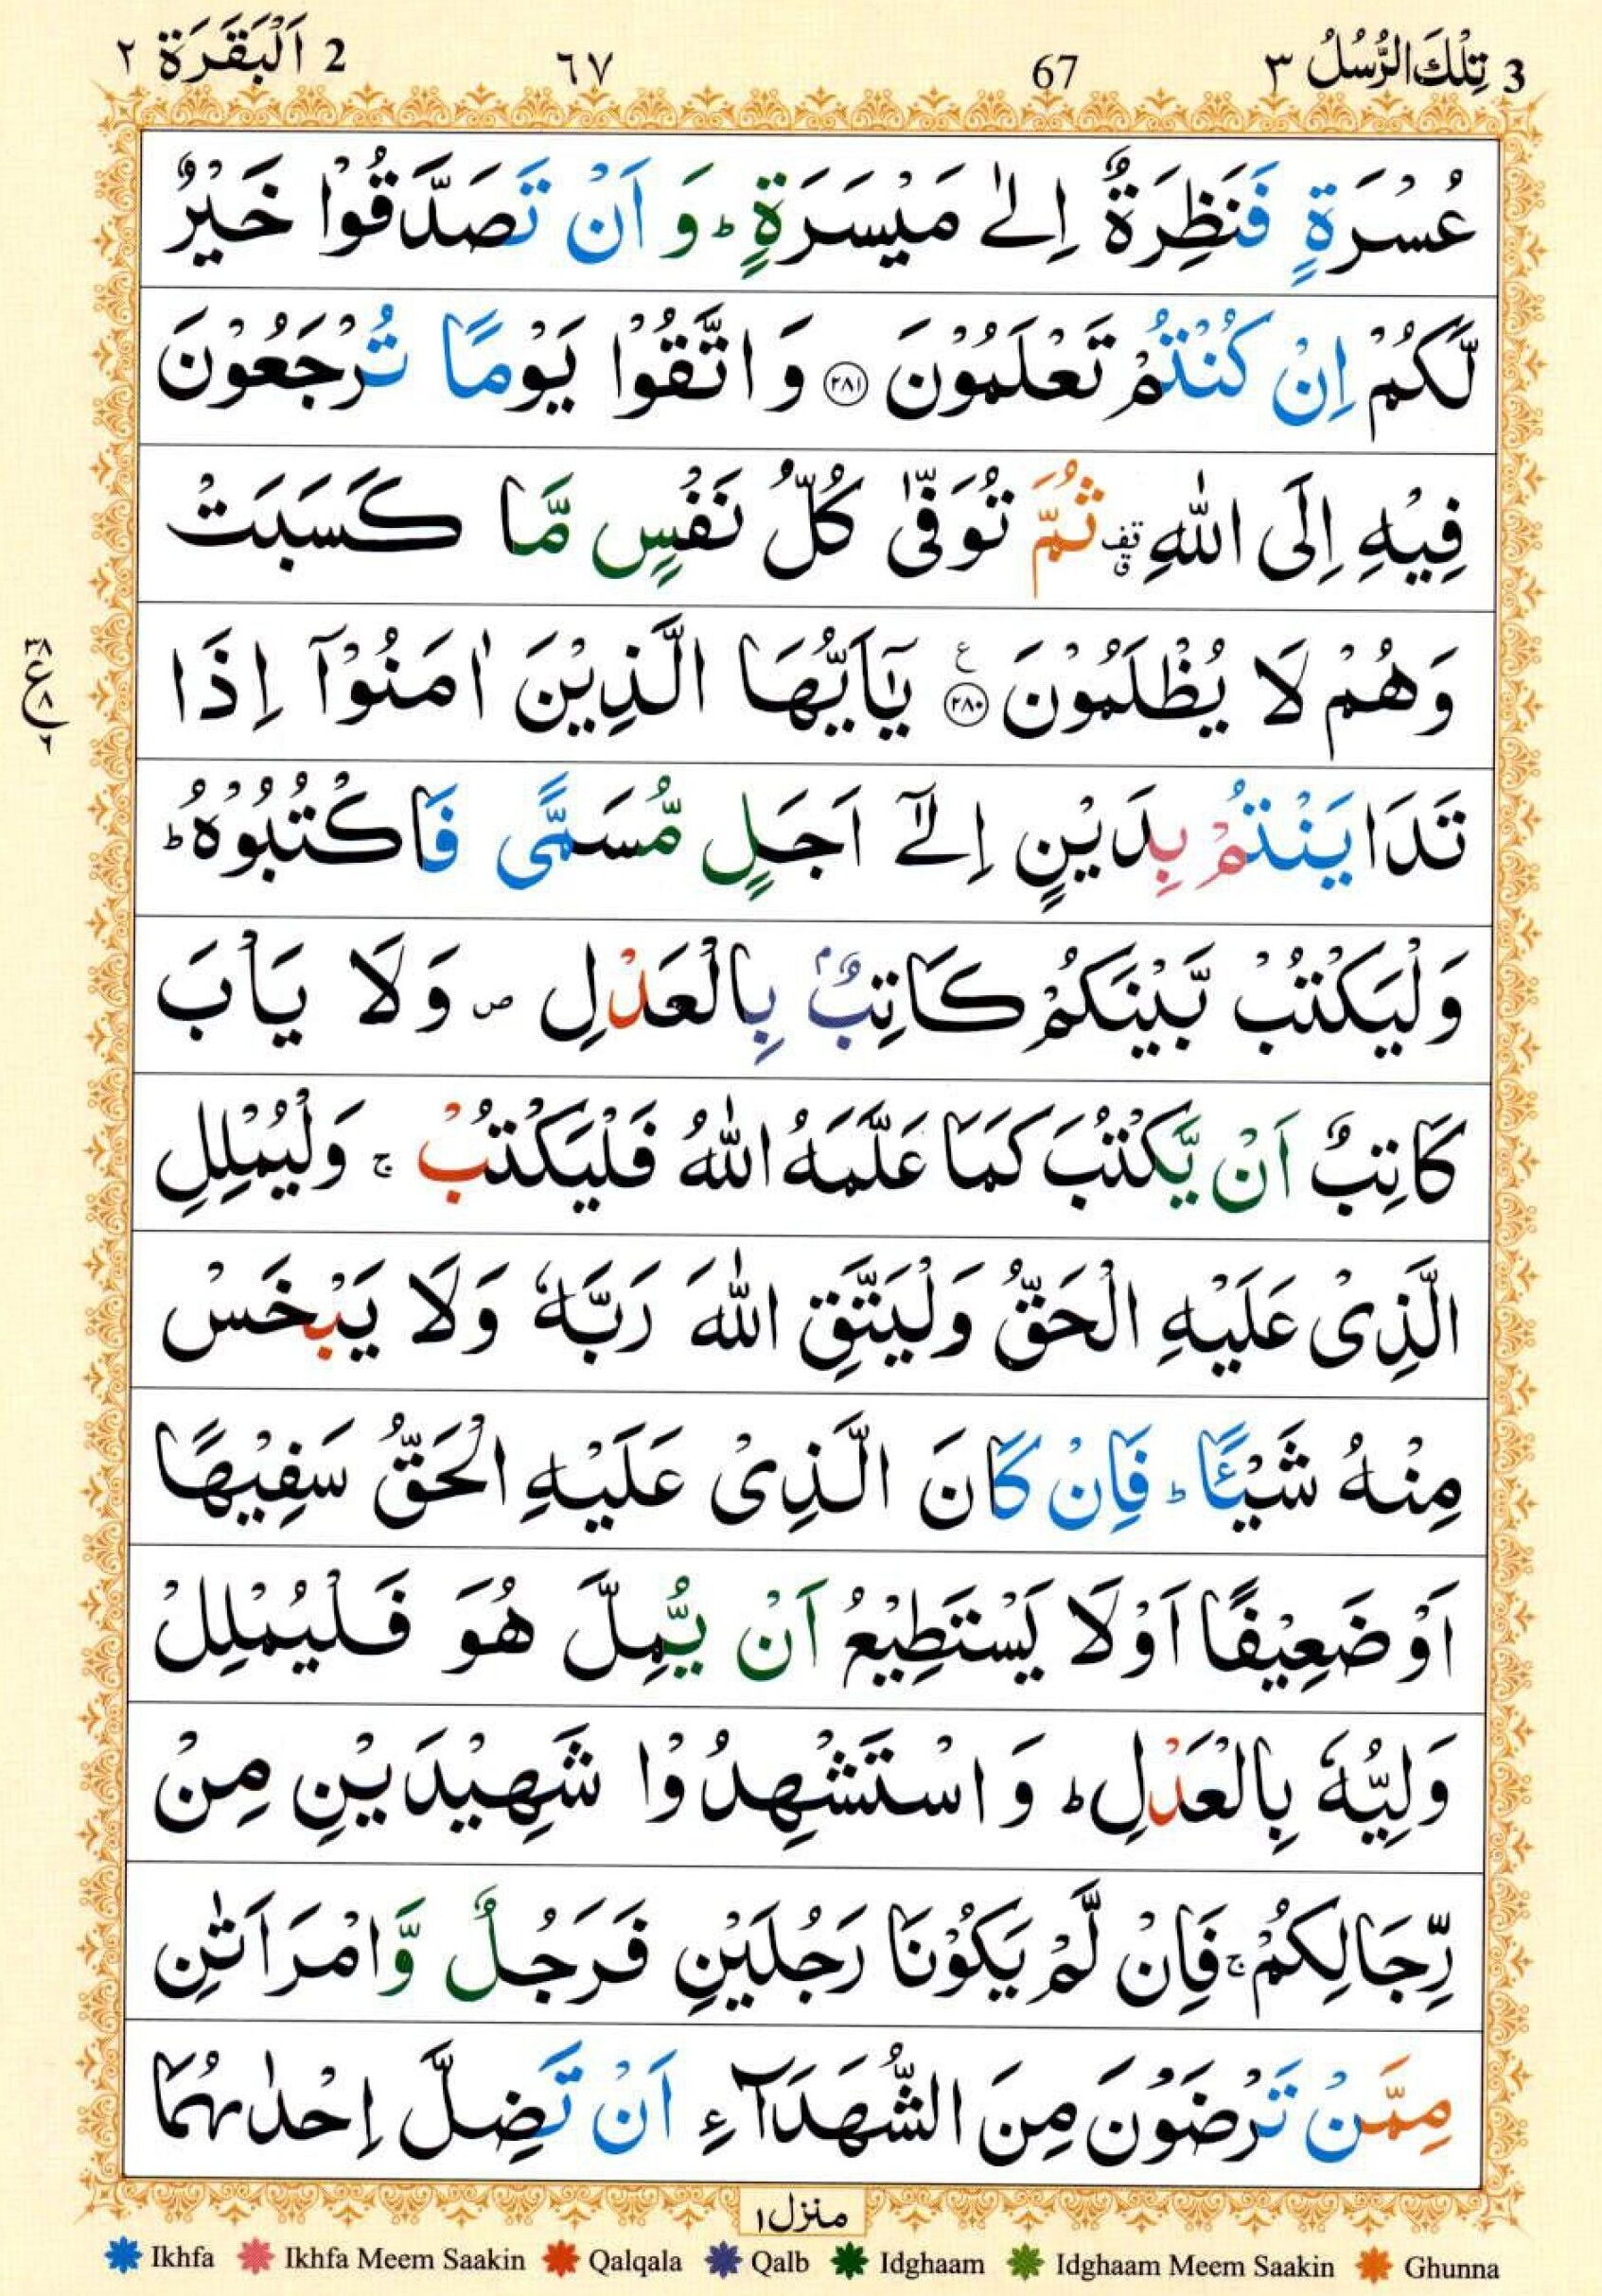 3 تِلْكَ الرُّسُلُ ٣ 67 ٦٧ 2 اَلْبَقَرَة ٢
عُسْرَةٍ فَنَظِرَةٌ اِلٰى مَيْسَرَةٍ ؕ وَ اَنْ تَصَدَّقُوْا خَيْرٌ
لَّكُمْ اِنْ كُنْتُمْ تَعْلَمُوْنَ ﴿٢٨١﴾ وَ اتَّقُوْا يَوْمًا تُرْجَعُوْنَ
فِيْهِ اِلَى اللّٰهِ ۟ قف ثُمَّ تُوَفّٰى كُلُّ نَفْسٍ مَّا كَسَبَتْ
وَهُمْ لَا يُظْلَمُوْنَ ﴿٢٨٠﴾ ع يٰٓاَيُّهَا الَّذِيْنَ اٰمَنُوْٓا اِذَا
٣٨ ع ٨ ٦
تَدَايَنْتُمْ بِدَيْنٍ اِلٰٓى اَجَلٍ مُّسَمًّى فَاكْتُبُوْهُ ؕ
وَلْيَكْتُبْ بَّيْنَكُمْ كَاتِبٌۢ بِالْعَدْلِ ص وَلَا يَاْبَ
كَاتِبٌ اَنْ يَّكْتُبَ كَمَا عَلَّمَهُ اللّٰهُ فَلْيَكْتُبْ ج وَلْيُمْلِلِ
الَّذِىْ عَلَيْهِ الْحَقُّ وَلْيَتَّقِ اللّٰهَ رَبَّهٗ وَلَا يَبْخَسْ
مِنْهُ شَيْـًٔا ؕ فَاِنْ كَانَ الَّذِىْ عَلَيْهِ الْحَقُّ سَفِيْهًا
اَوْ ضَعِيْفًا اَوْ لَا يَسْتَطِيْعُ اَنْ يُّمِلَّ هُوَ فَلْيُمْلِلْ
وَلِيُّهٗ بِالْعَدْلِ ؕ وَ اسْتَشْهِدُوْا شَهِيْدَيْنِ مِنْ
رِّجَالِكُمْ ج فَاِنْ لَّمْ يَكُوْنَا رَجُلَيْنِ فَرَجُلٌ وَّامْرَاَتٰنِ
مِمَّنْ تَرْضَوْنَ مِنَ الشُّهَدَآءِ اَنْ تَضِلَّ اِحْدٰىهُمَا
منزل ١
Ikhfa Ikhfa Meem Saakin Qalqala Qalb Idghaam Idghaam Meem Saakin Ghunna